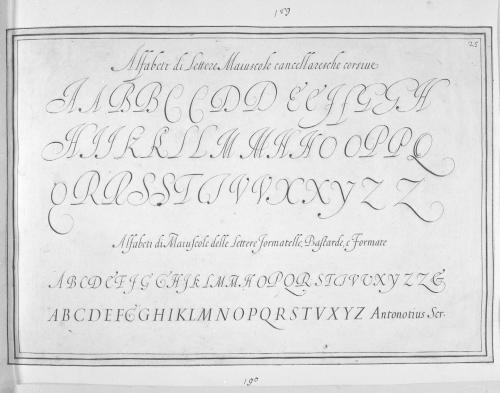 189
25
Alfabeti di Lettere Maiuscole cancellaresche corsive
A A B B C C D D E E F F G G H
H I I K K L L M M N N O O P P Q
Q R R S S T T V V X X Y Z Z
Alfabeti di Maiuscole delle Lettere formatelle, Bastarde, e Formate
A B C D E F G G H I K L M M N O P Q R S T T V V X X Y Z Z &
A B C D E F G G H I K L M N O P Q R S T V X Y Z Antonotius Scr.
190